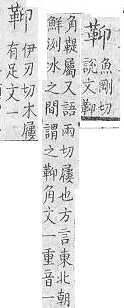 䩕
魚剛切
說文䩕
角鞮屬又語兩切屨也方言東北朝
鮮洌水之間謂之䩕角文一重音一
伊刃切木屨
有足文一